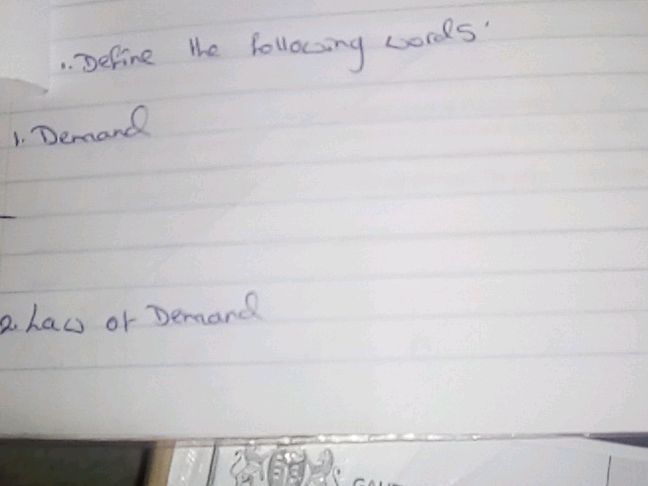 1. Define the following words.
1. Demand
2. Law of Demand